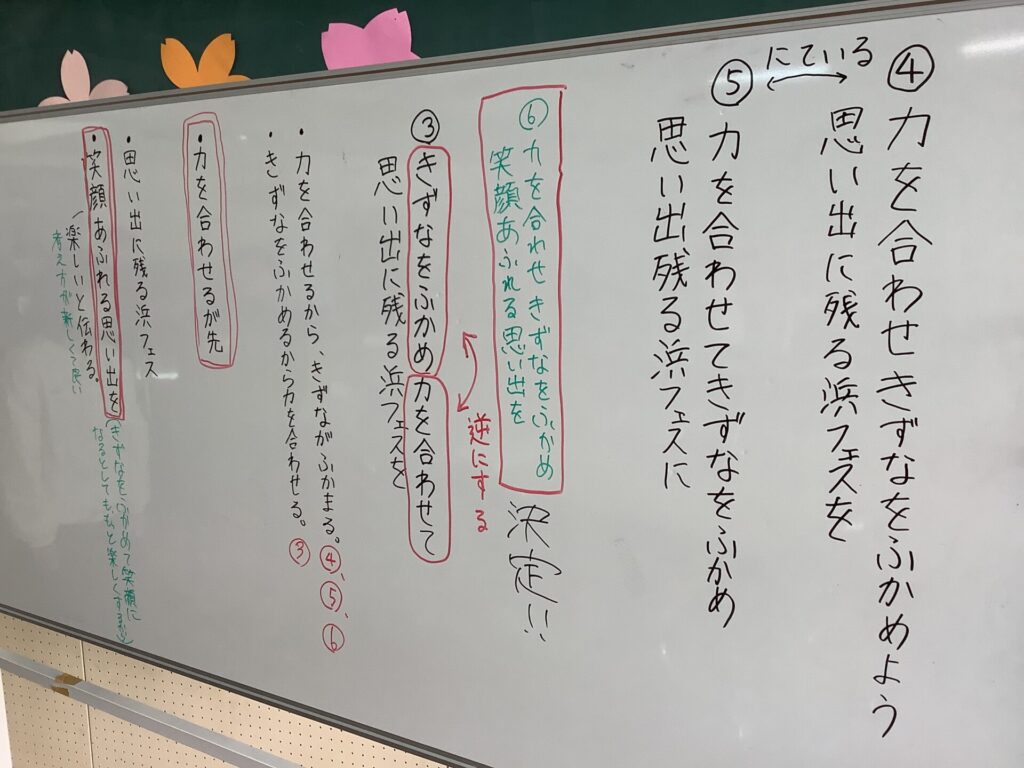 ④力を合わせきずなをふかめよう
思い出に残る浜フェスを
にている
⑤力を合わせてきずなをふかめ
思い出残る浜フェスに
⑥力を合わせきずなをふかめ
笑顔あふれる思い出を
決定!!
③きずなをふかめ力を合わせて
思い出に残る浜フェスを
逆にする
・力を合わせるから、きずながふかまる。④、⑤、⑥
・きずなをふかめるから力を合わせる。③
・力を合わせるが先
・思い出に残る浜フェス
・笑顔あふれる思い出を
きずなをふかめて笑顔に
なるとしてももっと楽しくするから
楽しいと伝わる。
考え方が新しくて良い